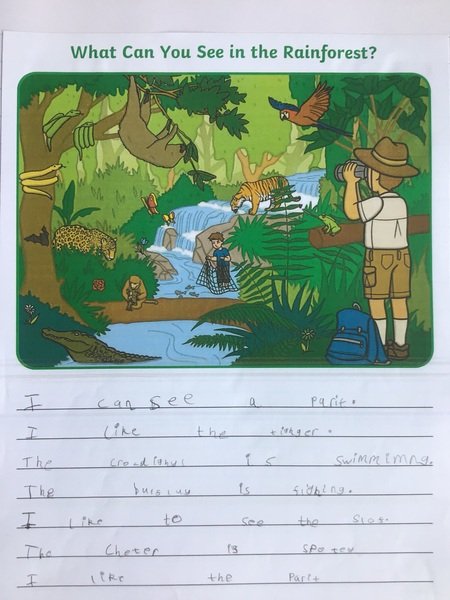 What Can You See in the Rainforest?
I can see a parit.
I like the tighger.
The is swimmimng.
The is fighing.
I like to see the slos.
The Cheter is spotey
I like the Parit